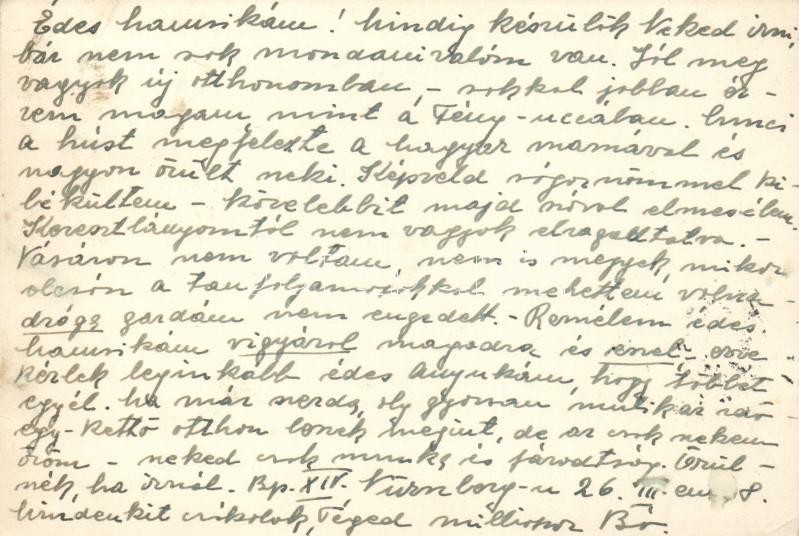 Édes hamsikám! Mindig készülök Neked írni
bár nem sok mondanivalóm van. Jól meg
vagyok új otthonomban – sokkal jobban ér-
zem magam, mint a Fény-uccában. Munci
a húst megfelezte a magyar mamával és
nagyon örült neki. Képzeld sógornőmmel ki-
békültem – közelebbit majd szóval elmesélem.
Keresztlányomtól nem vagyok elragadtatva. –
Vásáron nem voltam, nem is megyek, mikor
olcsón a tanfolyamosokkal mehettem volna
drága gardám nem engedett. – Remélem édes
hamsikám vigyázol magadra és eszel, erre
kérlek leginkább édes Anyukám, hogy többet
egyél. Ma már szerda, oly gyorsan múlik az idő
egy-kettő otthon leszek megint, de az csak nekem
öröm – neked csak munka és fáradtság. Örül-
nék, ha írnál. Bp. XIV. Nürnberg-u 26. III. em. 8.
Mindenkit csókolok, Téged milliószor Bö.